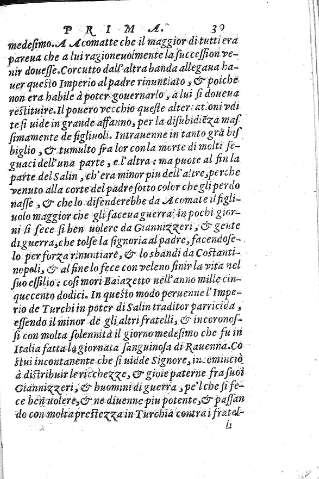 PRIMA. 30
medesimo. A Acomatte che il maggior di tutti era
pareua che a lui ragioneuolmente la successiõn ve-
nir douesse. Corcutto dall'altra banda allegaua ha-
uer questo Imperio al padre rinuntiato, & poiche
non era habile à poter gouernarlo, à lui si doueua
restituire. Il pouero vecchio queste altercationi vdi
te si uide in grande affanno, per la disubidieza mas
simamente de figliuoli. Intrauenne in tanto grã bis
biglio, & tumulto fra lor con la morte di molti se-
guaci dell'una parte, e l'altra: ma puote al fin la
parte del Salin, ch'era minor piu dell'altre, perche
venuto alla corte del padre sotto color che gli perdo
nasse, & che lo difenderebbe da Acomate il figli-
uolo maggior che gli faceua guerra; in pochi gior-
ni si fece si ben uolere da Giannizzeri, & gente
di guerra, che tolse la signoria al padre, facendose-
lo per forza rinuntiare, & lo sbandì da Costanti-
nopoli, & al fine lo fece con veleno finir la vita nel
suo essilio: così morì Baiazetto nell'anno mille cin-
quecento dodici. In questo modo peruenne l'Impe-
rio de Turchi in poter di Salin traditor parricida,
essendo il minor de gli altri fratelli, & incorono s-
si con molta solennità il giorno medesimo che fu in
Italia fatta la giornata sanguinosa di Rauenna. Co
stui incontanente che si uidde Signore, incominciò
à distribuir le ricchezze, & gioie paterne fra suoi
Giannizzeri, & huomini di guerra, pe'l che si fe-
ce ben uolere, & ne diuenne piu potente, & passan
do con molta prestezza in Turchia contra i fratel-
li